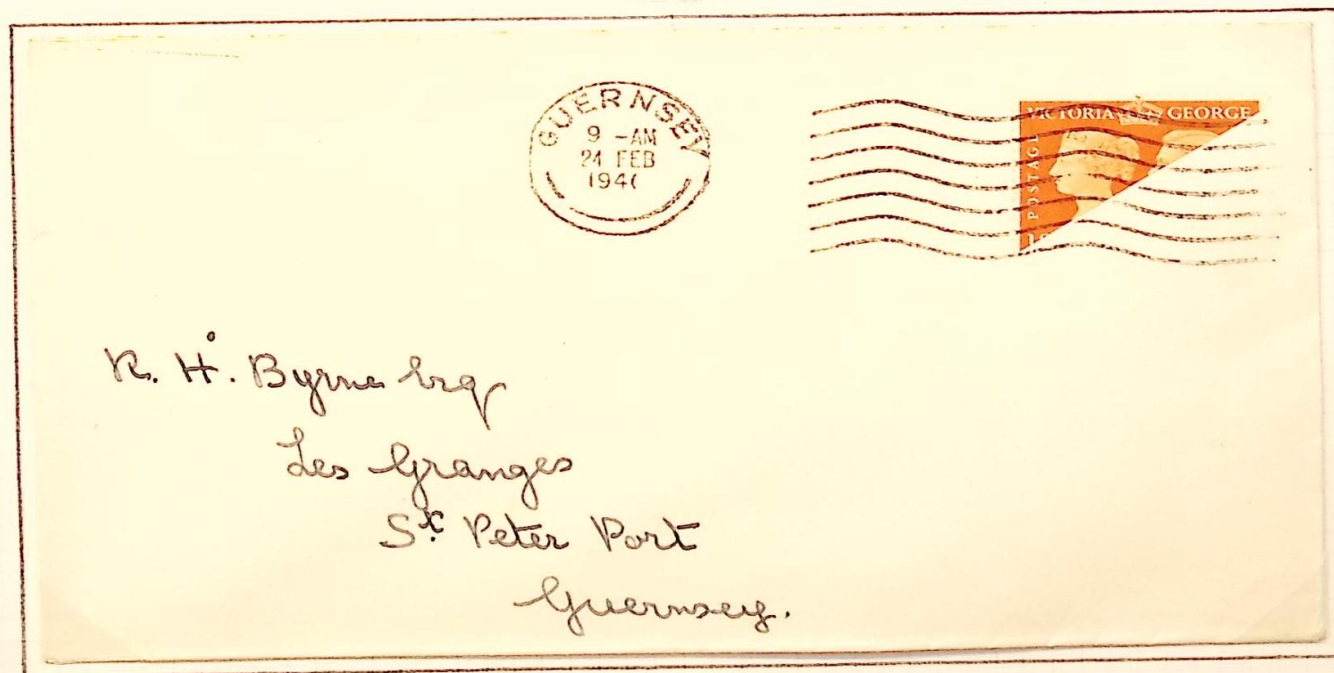 GUERNSEY
9 - AM
24 FEB
194
VICTORIA GEORGE
POSTAGE
R. H. Byrne Esq
Les Granges
St. Peter Port
Guernsey.